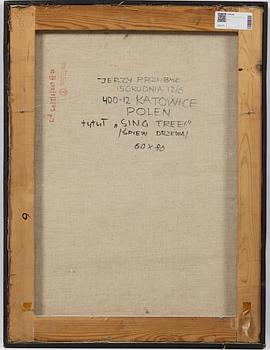 JERZY PRZYBYŁ
15 GRUDNIA 12/6
400-12 KATOWICE
POLEN
tytuł „SING TREE"
/ŚPIEW DRZEWA/
60 x 80
6